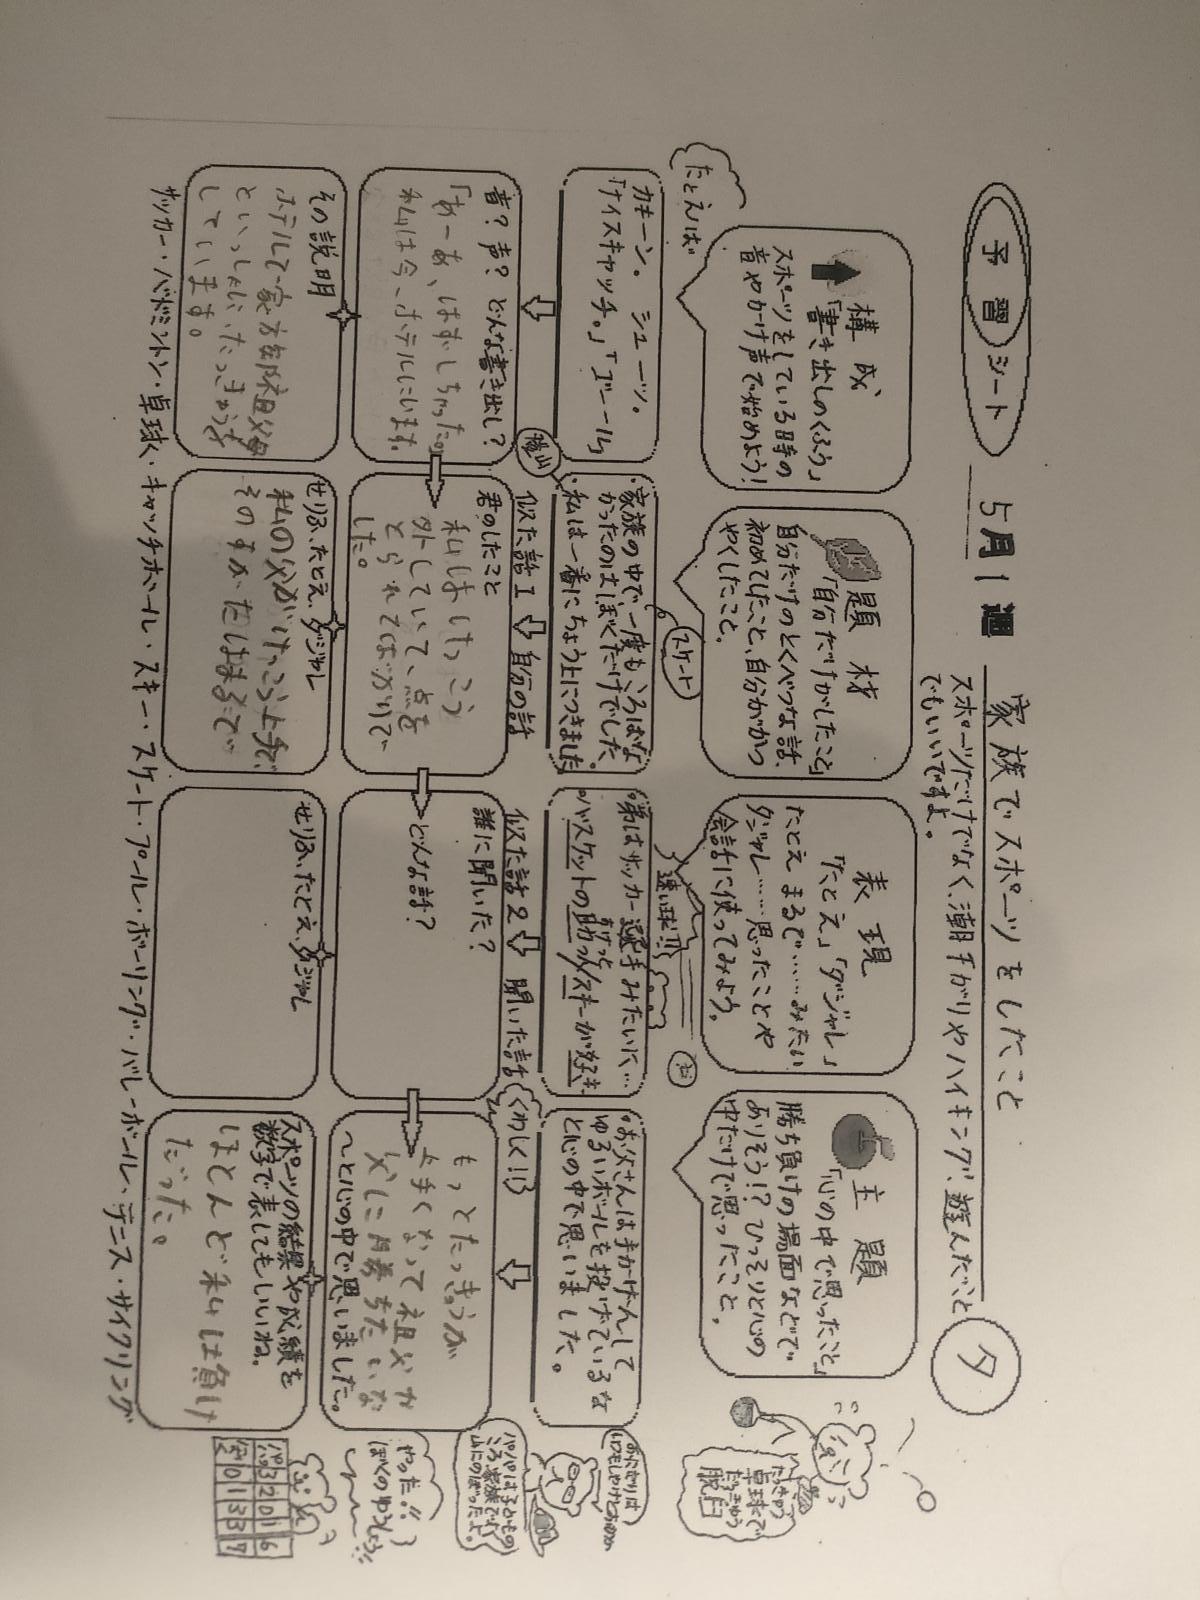 予習シート
5月1週
家族でスポーツをしたこと
スポーツだけでなく、潮干がりやハイキング、遊んだこと
でもいいですよ。
タ
構成
「書き出しのくふう」
スポーツをしている時の
音やかけ声で始めよう！
題材
「自分だけがしたこと」
自分だけのとくべつな話、
初めてしたこと、自分がかつ
やくしたこと。
表現
「たとえ」「ダジャレ」
たとえ まるで……みたい
ダジャレ……思ったことや
会話に使ってみよう。
主題
「心の中で思ったこと」
勝ち負けの場面などで
ありそう!? ひっそりと心の
中だけで思ったこと。
たとえば
カキーン。シューッ。
「ナイスキャッチ。」「ゴール」
スケート
・家族の中で一度もころばな
かったのはぼくだけでした。
登山
・私は一番にちょう上につきました。
速い球!!
・弟はサッカー選手みたいに…
・バスケットの助っ人
・お父さんは手かげんして
ゆるいボールを投げているな
と心の中で思いました。
音？声？どんな書き出し？
「あーあ、はずしちゃった。」
私は今、ホテルにいます。
似た話1
自分の話
君のしたこと
私はけっこう
外していて、点を
とられてばかりで
した。
似た話2
聞いた話
くわしく!!
誰に聞いた？
どんな話？
もっとたっきゅうが
上手くなって祖父か
父に勝ちたいな
〜と心の中で思いました。
その説明
ホテルで家族や祖父母
といっしょに、たっきゅうを
しています。
せりふ、たとえ、ダジャレ
私の父がけっこう上手で、
そのすがたはまるで
せりふ、たとえ、ダジャレ
スポーツの結果や成績を
数字で表してもいいね。
ほとんど私は負け
だった。
サッカー・バドミントン・卓球・キャッチボール・スキー・スケート・プール・ボーリング・バレーボール・テニス・サイクリング
たっきゅう
卓球で
だっきゅう
脱臼
パパはまるで
山にのぼったよ。
やった!!
ぼくのゆうしょう!!
パパ 3 2 0 1 6